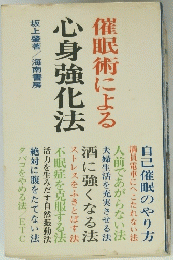 催眠術による
心身強化法
坂上肇著/海南書房
自己催眠のやり方
満員電車にへこたれない法
人前であがらない法
夫婦生活を充実させる法
酒に強くなる法
ストレスをふきとばす法
不眠症を克服する法
活力を生みだす自然振動法
絶対に腹をたてない法
タバコをやめる法・ETC